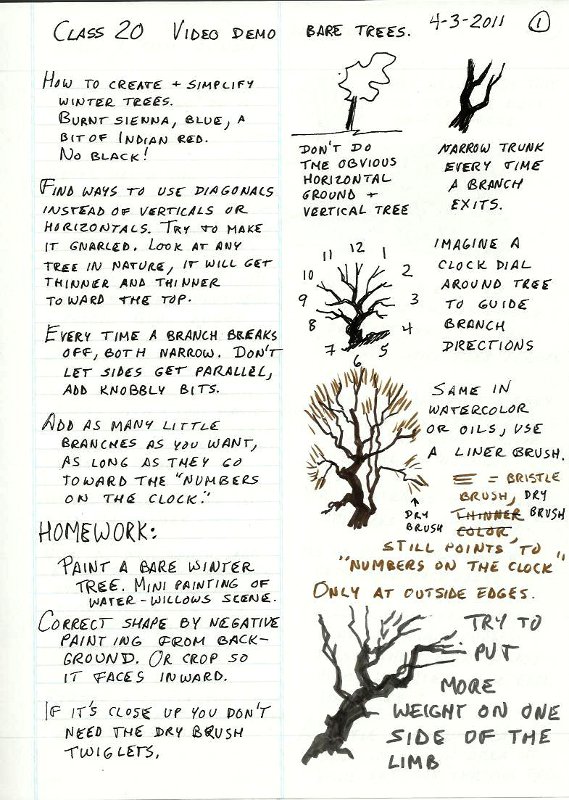 CLASS 20 VIDEO DEMO BARE TREES. 4-3-2011 1
HOW TO CREATE + SIMPLIFY
WINTER TREES.
BURNT SIENNA, BLUE, A
BIT OF INDIAN RED.
NO BLACK!
FIND WAYS TO USE DIAGONALS
INSTEAD OF VERTICALS OR
HORIZONTALS. TRY TO MAKE
IT GNARLED. LOOK AT ANY
TREE IN NATURE, IT WILL GET
THINNER AND THINNER
TOWARD THE TOP.
EVERY TIME A BRANCH BREAKS
OFF, BOTH NARROW. DON'T
LET SIDES GET PARALLEL,
ADD KNOBBLY BITS.
ADD AS MANY LITTLE
BRANCHES AS YOU WANT,
AS LONG AS THEY GO
TOWARD THE "NUMBERS
ON THE CLOCK."
HOMEWORK:
PAINT A BARE WINTER
TREE. MINI PAINTING OF
WATER-WILLOWS SCENE.
CORRECT SHAPE BY NEGATIVE
PAINTING FROM BACK-
GROUND. OR CROP SO
IT FACES INWARD.
IF IT'S CLOSE UP YOU DON'T
NEED THE DRY BRUSH
TWIGLETS.
DON'T DO
THE OBVIOUS
HORIZONTAL
GROUND +
VERTICAL TREE
NARROW TRUNK
EVERY TIME
A BRANCH
EXITS.
12
11 1
10 2
9 3
8 4
7 5
6
IMAGINE A
CLOCK DIAL
AROUND TREE
TO GUIDE
BRANCH
DIRECTIONS
SAME IN
WATERCOLOR
OR OILS, USE
A LINER BRUSH.
= BRISTLE
BRUSH, DRY
THINNER BRUSH
COLOR,
DRY
BRUSH
STILL POINTS TO
"NUMBERS ON THE CLOCK"
ONLY AT OUTSIDE EDGES.
TRY TO
PUT
MORE
WEIGHT ON ONE
SIDE OF THE
LIMB